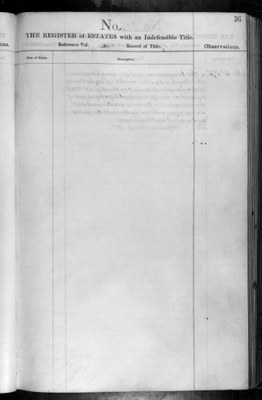 36
No.
THE REGISTER of ESTATES with an Indefeasible Title.
Reference Vol. Fo. Record of Title.
Observations.
Date of Entry.
Description.